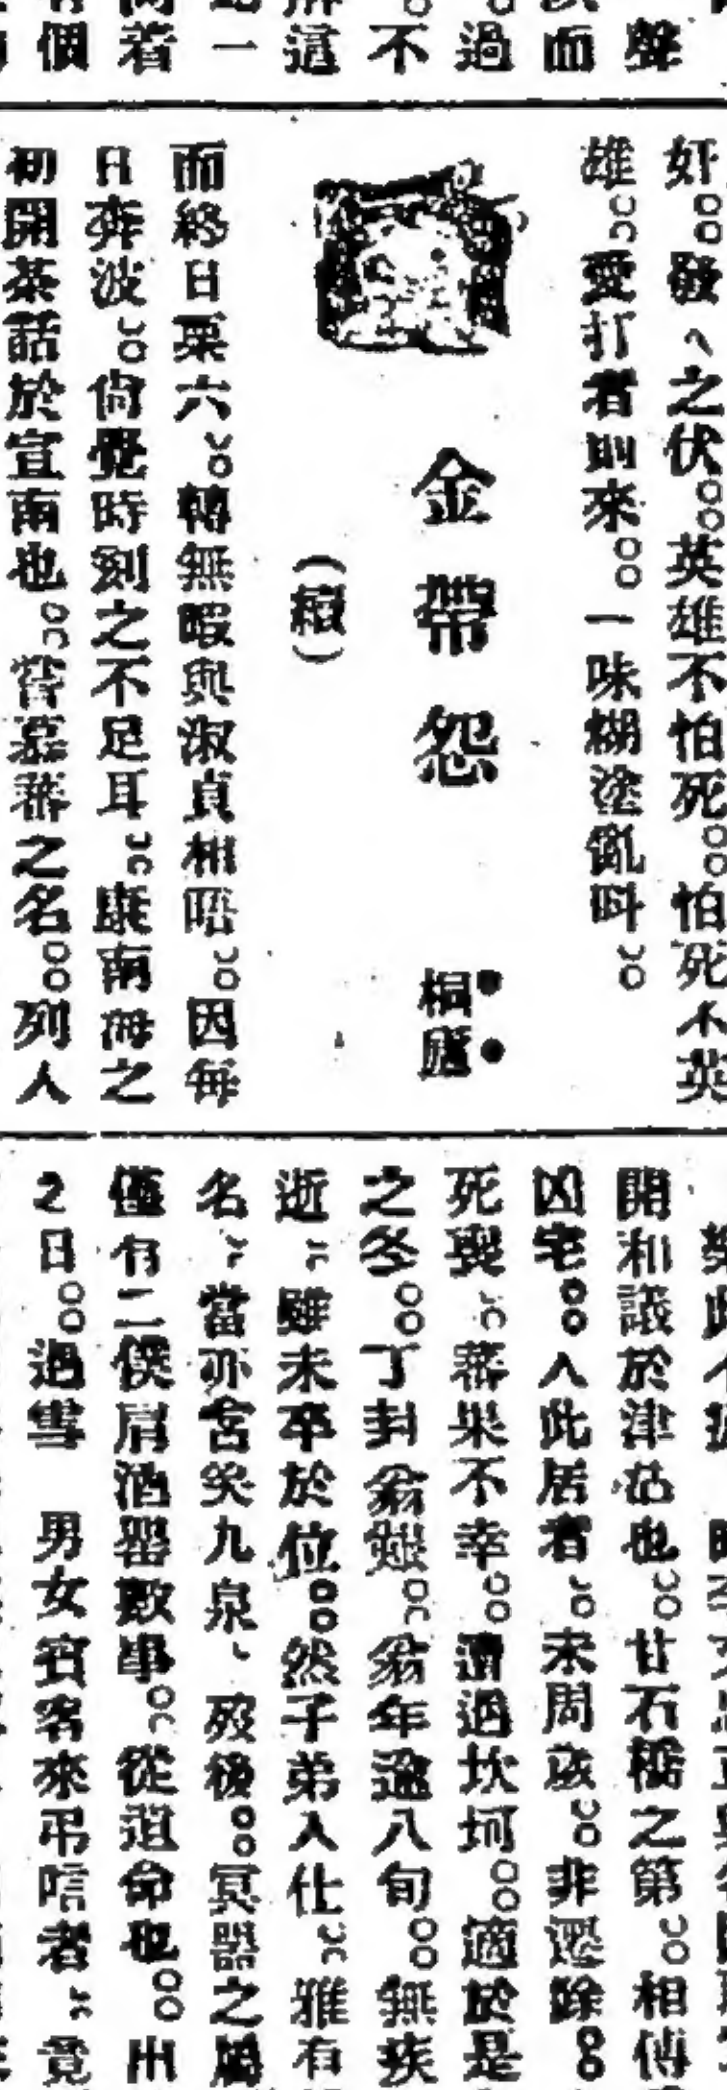 聲
而
過
不
這
一
着
個
奸。發〻之伏。英雄不怕死。怕死不英
雄。愛打者則來。一味糊塗亂呌。
金帶怨
桐廬
(續)
而終日栗六。轉無暇與淑貞相晤。因每
日奔波。尙覺時刻之不足耳。康南海之
初開茶話於宣南也。嘗慕蕃之名。列人
開和議於津沽也。甘石橋之第。相傳
凶宅。入此居者。未周歲。非遷除。
死喪。蕃果不幸。遭遇坎坷。適於是
之冬。丁封翁艱。翁年逾八旬。無疾
逝。雖未卒於位。然子弟入仕。雅有
名。當亦含笑九泉、歿後。冥器之屬
僅有二僕肩酒罌數事。從道命也。出
之日。遇雪 男女賓客來弔唁者。竟